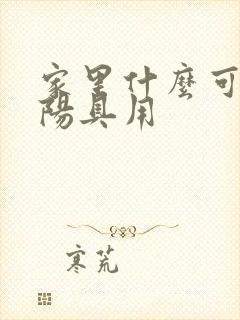 家里什麼可
陽具用
寒荒